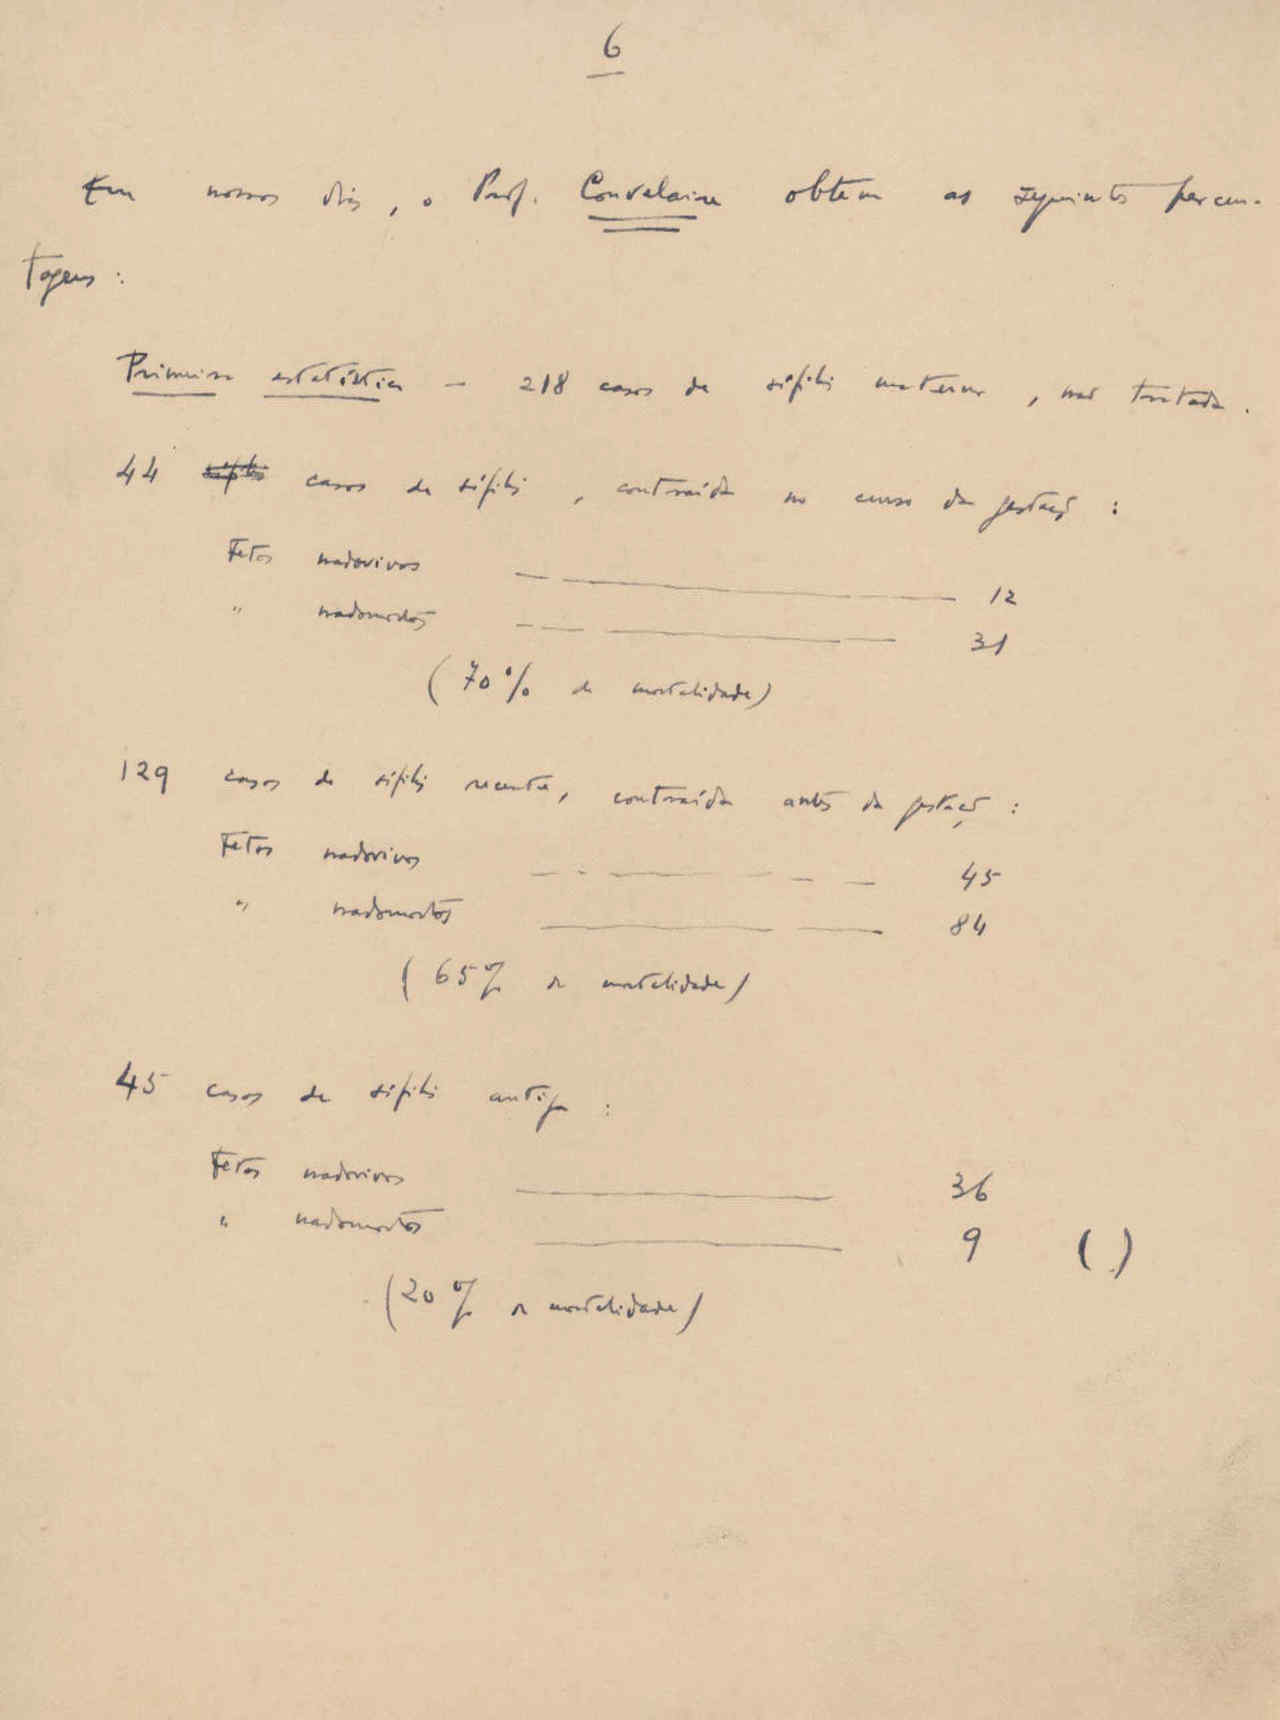 6
Em nossos dias, o Prof. Couvelaire obtem as seguintes percen-
tagens :
Primeira estatística - 218 casos de sífilis materna, não tratada.
44 casos de sífilis, contraída no curso da gestação :
Fetos nadovivos 12
" nadomortos 31
(70% de mortalidade)
129 casos de sífilis recente, contraída antes da gestação :
Fetos nadovivos 45
" nadomortos 84
(65% de mortalidade)
45 casos de sífilis antiga :
Fetos nadovivos 36
" nadomortos 9 ( )
(20% de mortalidade)